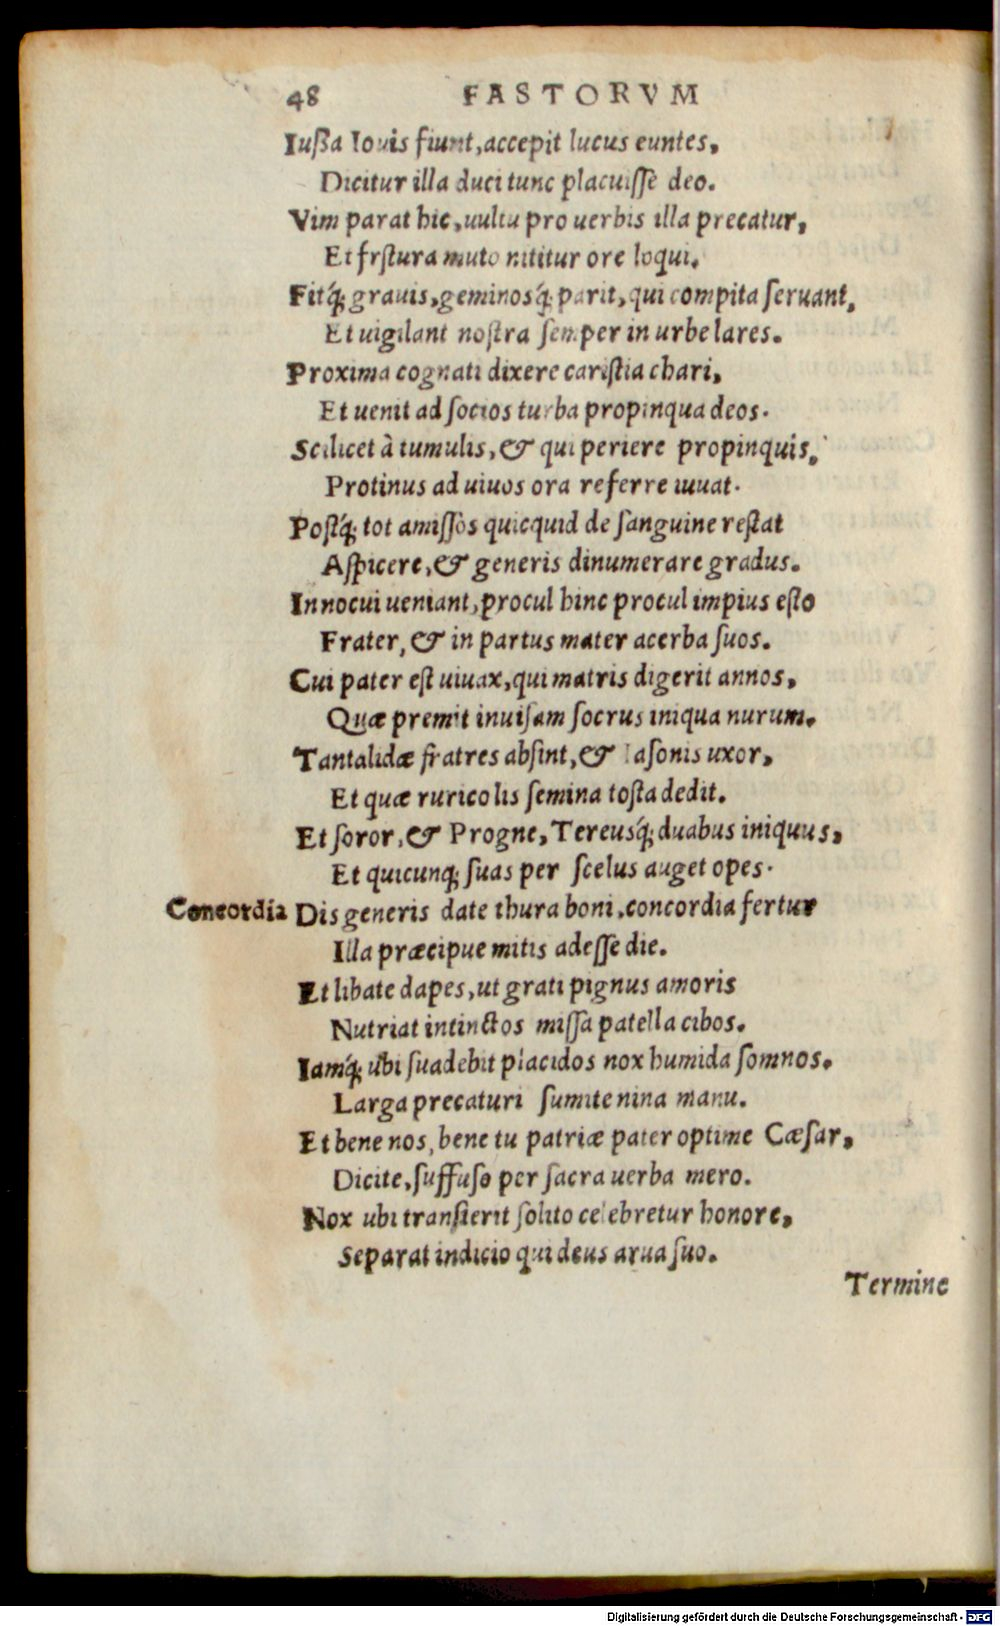 48 FASTORVM
Iußa Iouis fiunt, accepit lucus euntes,
Dicitur illa duci tunc placuiſſe deo.
Vim parat hic, uultu pro uerbis illa precatur,
Et frſtura muto nititur ore loqui.
Fitq́; grauis, geminosq́; parit, qui compita ſeruant,
Et uigilant noſtra ſemper in urbe lares.
Proxima cognati dixere cariſtia chari,
Et uenit ad ſocios turba propinqua deos.
Scilicet à tumulis, & qui periere propinquis,
Protinus ad uiuos ora referre iuuat.
Poſtq́; tot amiſſos quicquid de ſanguine reſtat
Aſpicere, & generis dinumerare gradus.
Innocui ueniant, procul hinc procul impius eſto
Frater, & in partus mater acerba ſuos.
Cui pater eſt uiuax, qui matris digerit annos,
Quæ premit inuiſam ſocrus iniqua nurum.
Tantalidæ fratres abſint, & Iaſonis uxor,
Et quæ ruricolis ſemina toſta dedit.
Et ſoror, & Progne, Tereusq́; duabus iniquus,
Et quicunq; ſuas per ſcelus auget opes.
Concordia Dis generis date thura boni, concordia fertur
Illa præcipue mitis adeſſe die.
Et libate dapes, ut grati pignus amoris
Nutriat intinctos miſſa patella cibos.
Iamq́; ubi ſuadebit placidos nox humida ſomnos.
Larga precaturi ſumite nina manu.
Et bene nos, bene tu patriæ pater optime Cæſar,
Dicite, ſuffuſo per ſacra uerba mero.
Nox ubi tranſierit ſolito celebretur honore,
Separat indicio qui deus arua ſuo.
Termine
Digitalisierung gefördert durch die Deutsche Forschungsgemeinschaft - DFG